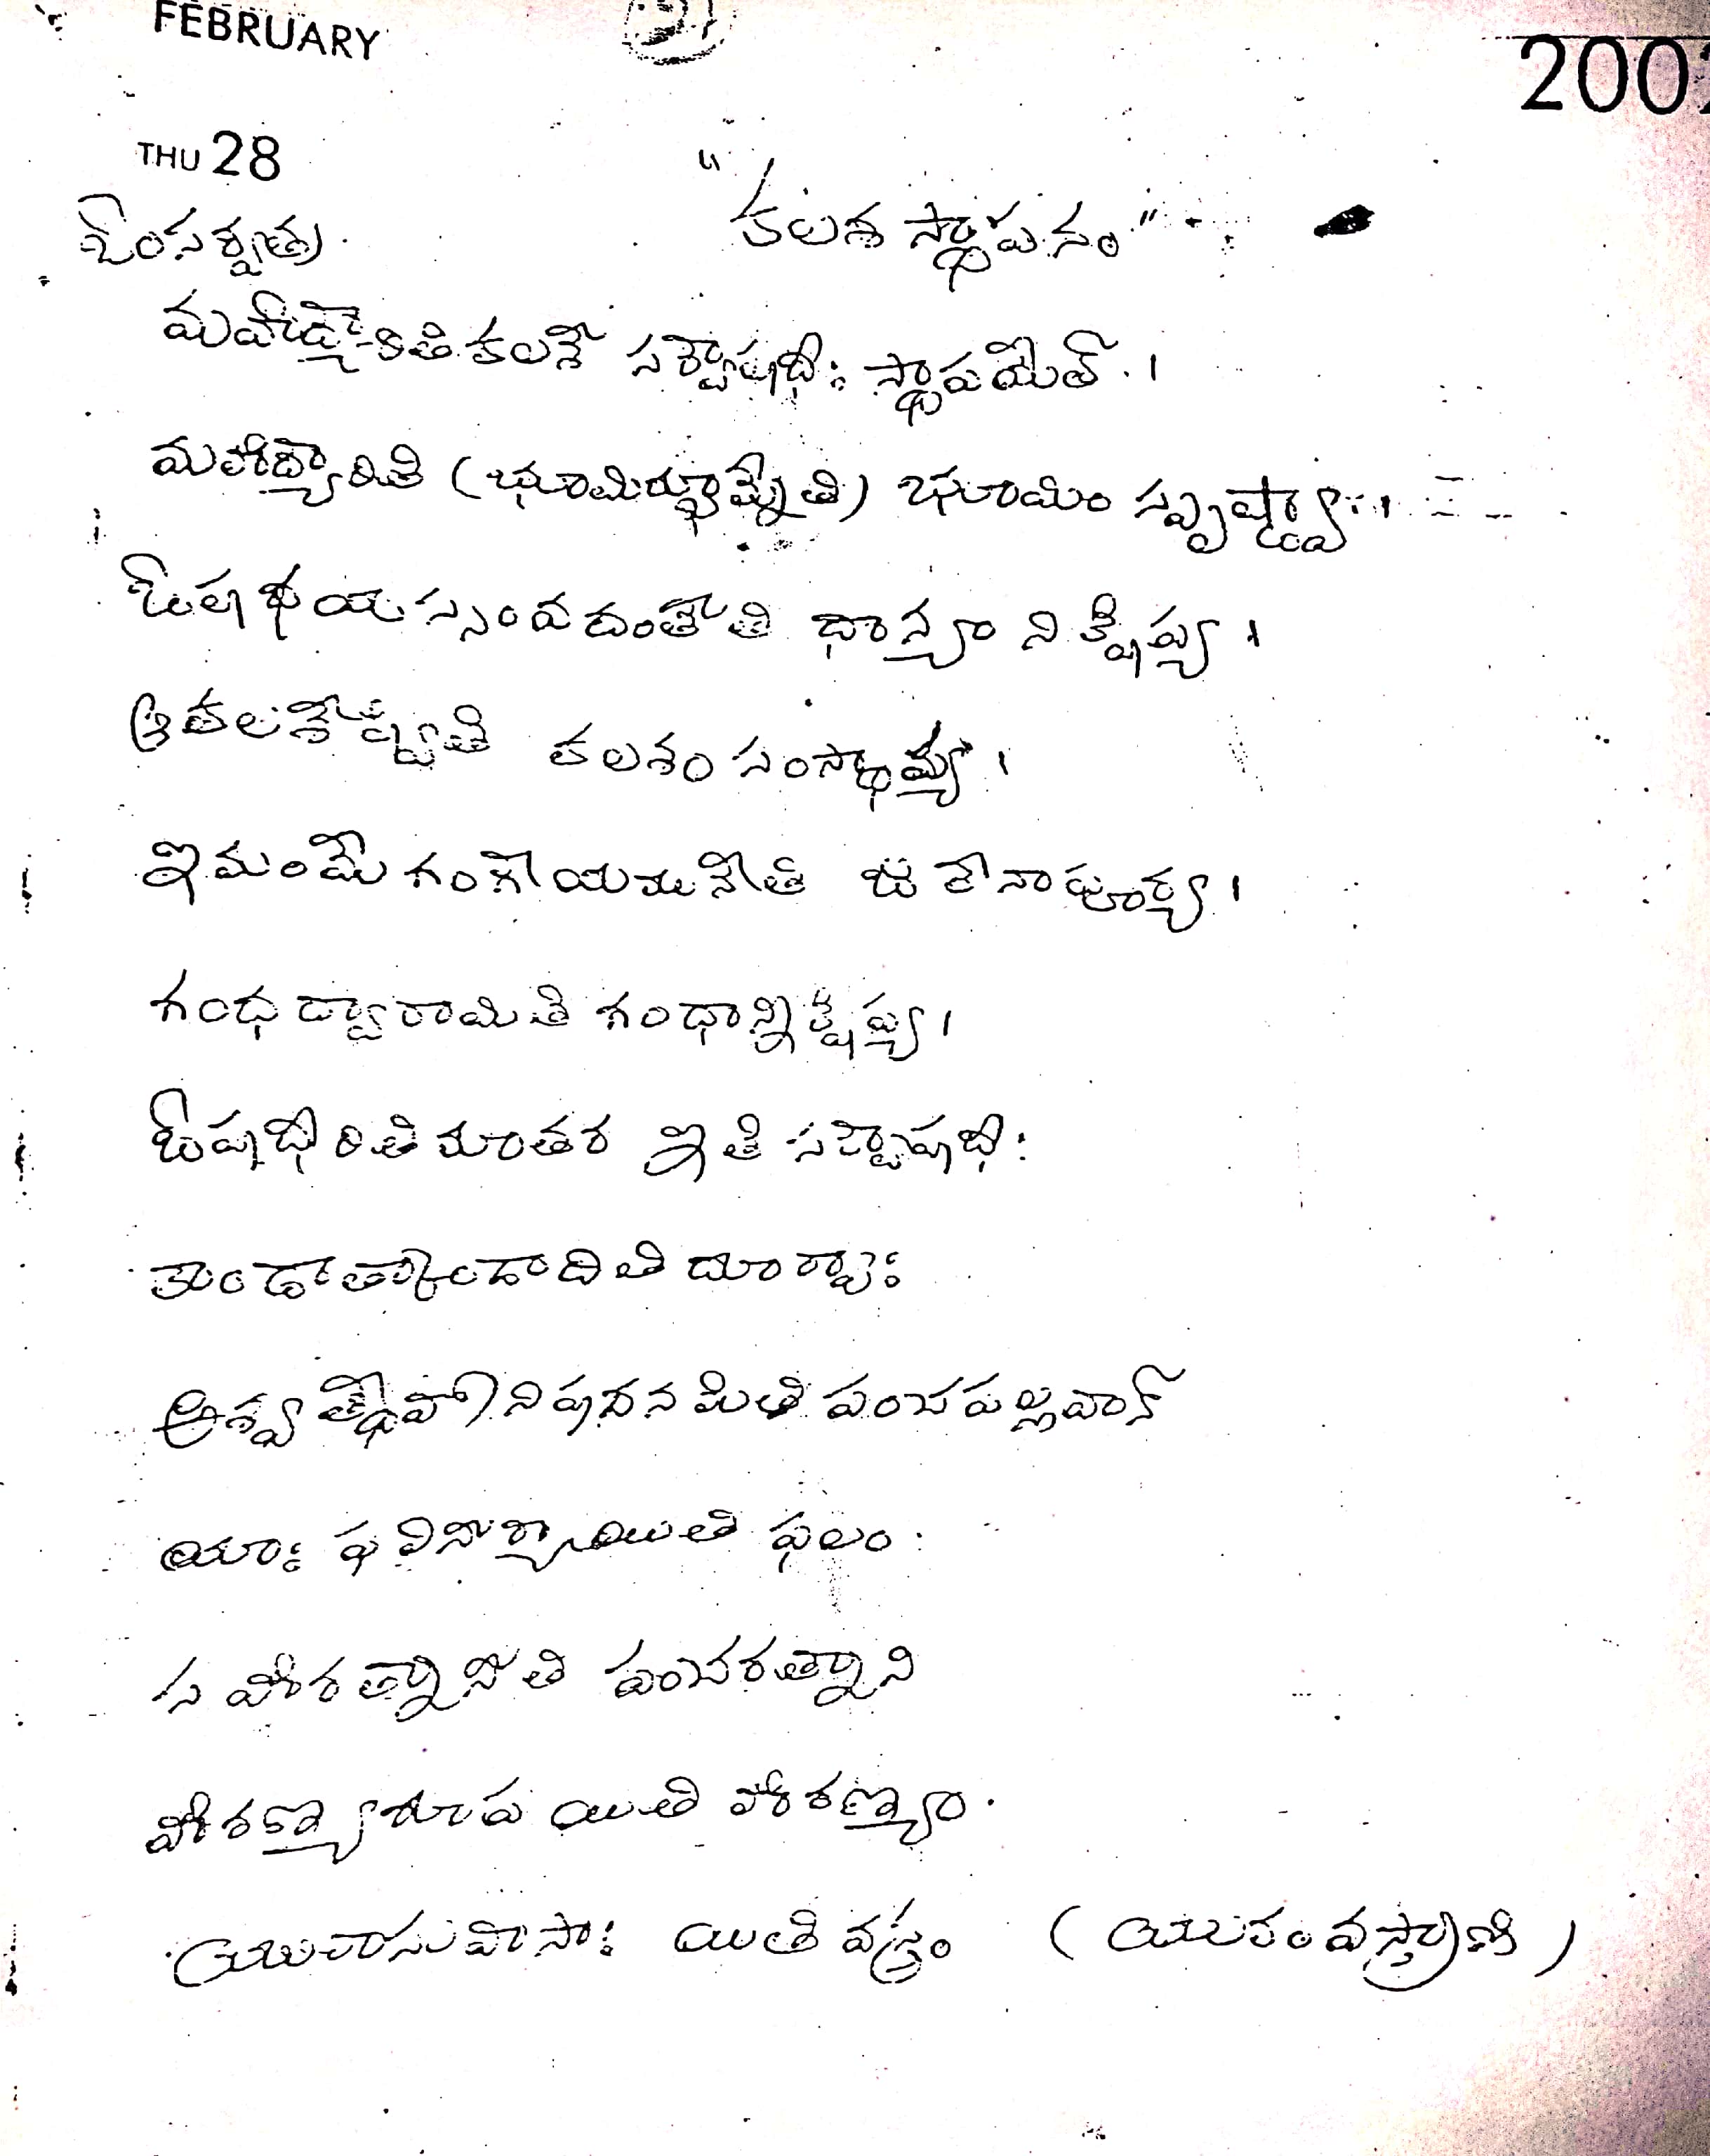 FEBRUARY
2002
THU 28
"కలశ స్థాపనం"
ఓంసర్వత్ర
మహీద్యౌరితి కలశే సర్వౌషధీః స్థాపయేత్ ।
మహీద్యౌరితి (భూమిర్భూమ్నేతి) భూమిం స్పృష్ట్వా ।
ఓషధయస్సంవదంతేతి ధాన్యం నిక్షిప్య ।
ఆకలశేష్వితి కలశం సంస్థాప్య ।
ఇమంమే గంగేయమునేతి జలేనాపూర్య ।
గంధద్వారామితి గంధాన్నిక్షిప్య ।
ఓషధీరితి మాతర ఇతి సర్వౌషధీః
కాండాత్కాండాదితి దూర్వాః
అశ్వత్థేవో నిషదనమితి పంచపల్లవాన్
యాః ఫలినీర్యా యితి ఫలం
సహిరత్నానీతి పంచరత్నాని
హిరణ్యరూప యితి హిరణ్యం
యువాసువాసాః యితి వస్త్రం (యువంవస్త్రాణి)